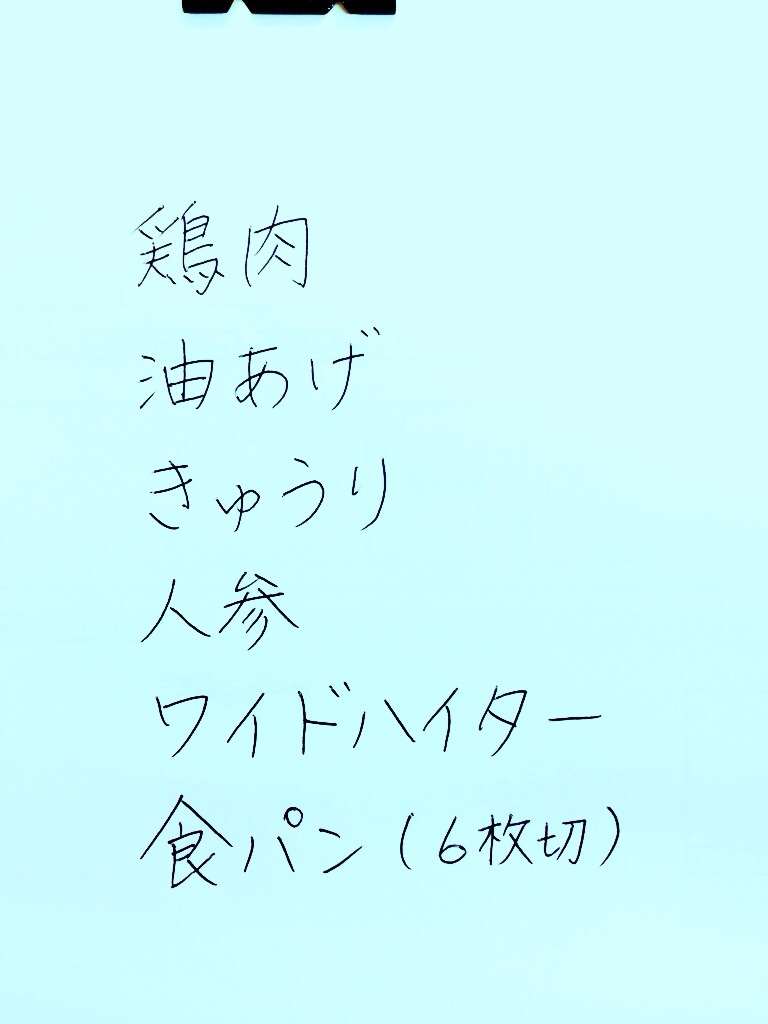 鶏肉
油あげ
きゅうり
人参
ワイドハイター
食パン(6枚切)